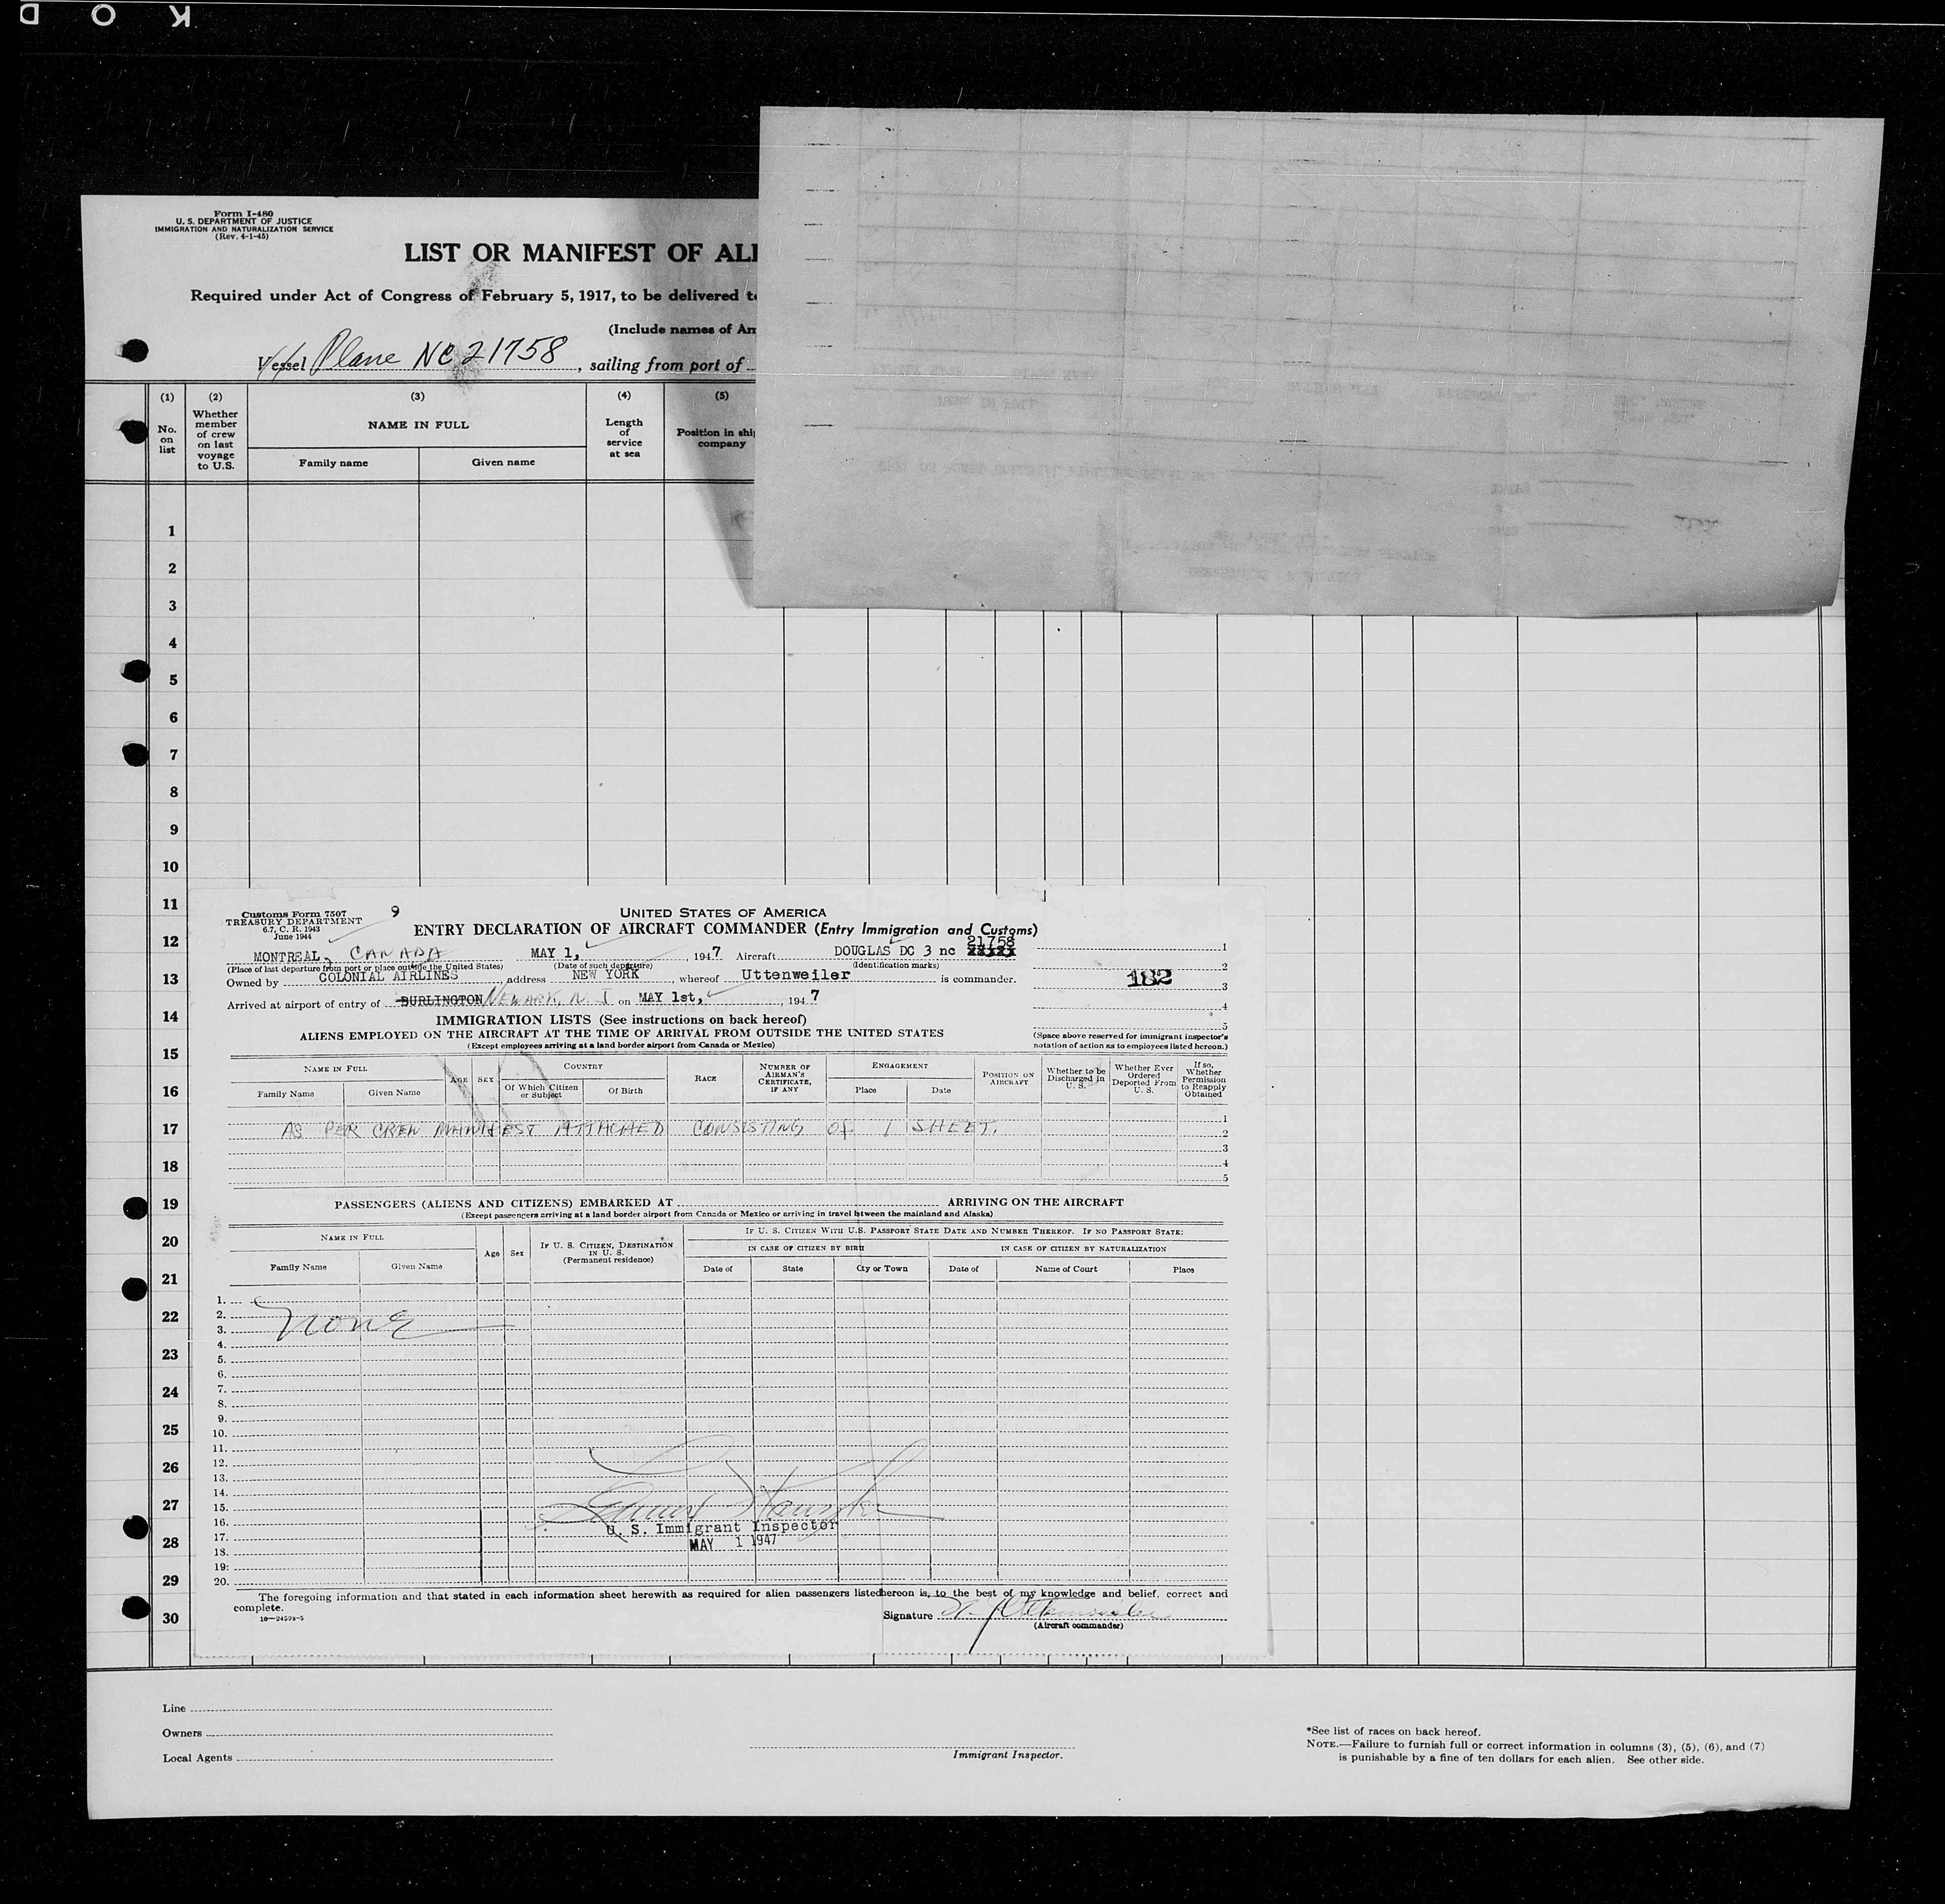 KOD
Form I-480
U. S. DEPARTMENT OF JUSTICE
IMMIGRATION AND NATURALIZATION SERVICE
(Rev. 4-1-45)
LIST OR MANIFEST OF ALI
Required under Act of Congress of February 5, 1917, to be delivered t
(Include names of Am
Vessel Plane NC 21758, sailing from port of
(1) (2) (3) (4) (5)
No. on list
Whether member of crew on last voyage to U.S.
NAME IN FULL
Family name Given name
Length of service at sea
Position in ship company
1
2
3
4
5
6
7
8
9
10
11
12
13
14
15
16
17
18
19
20
21
22
23
24
25
26
27
28
29
30
Customs Form 7507
TREASURY DEPARTMENT
6.7, C. R. 1943
June 1944
9
UNITED STATES OF AMERICA
ENTRY DECLARATION OF AIRCRAFT COMMANDER (Entry Immigration and Customs)
21758
MONTREAL, CANADA MAY 1, , 1947 Aircraft DOUGLAS DC 3 nc
(Place of last departure from port or place outside the United States) (Date of such departure) (Identification marks)
Owned by COLONIAL AIRLINES address NEW YORK, whereof Uttenweiler is commander.
Arrived at airport of entry of BURLINGTON NEWARK, N. J on MAY 1st, , 1947
1
2
182
3
4
5
(Space above reserved for immigrant inspector's
notation of action as to employees listed hereon.)
IMMIGRATION LISTS (See instructions on back hereof)
ALIENS EMPLOYED ON THE AIRCRAFT AT THE TIME OF ARRIVAL FROM OUTSIDE THE UNITED STATES
(Except employees arriving at a land border airport from Canada or Mexico)
NAME IN FULL
Family Name Given Name
AGE SEX
COUNTRY
Of Which Citizen or Subject Of Birth
RACE
NUMBER OF AIRMAN'S CERTIFICATE, IF ANY
ENGAGEMENT
Place Date
POSITION ON AIRCRAFT
Whether to be Discharged in U. S.
Whether Ever Ordered Deported From U. S.
If so, Whether Permission to Reapply Obtained
AS PER CREW MANIFEST ATTACHED CONSISTING OF 1 SHEET.
1
2
3
4
5
PASSENGERS (ALIENS AND CITIZENS) EMBARKED AT ARRIVING ON THE AIRCRAFT
(Except passengers arriving at a land border airport from Canada or Mexico or arriving in travel between the mainland and Alaska)
NAME IN FULL
Family Name Given Name
Age Sex
IF U. S. CITIZEN, DESTINATION IN U. S.
(Permanent residence)
IF U. S. CITIZEN WITH U.S. PASSPORT STATE DATE AND NUMBER THEREOF. IF NO PASSPORT STATE:
IN CASE OF CITIZEN BY BIRTH IN CASE OF CITIZEN BY NATURALIZATION
Date of State City or Town Date of Name of Court Place
1.
2.
3.
None
4.
5.
6.
7.
8.
9.
10.
11.
12.
13.
14.
15.
16.
17.
18.
19.
20.
U. S. Immigrant Inspector
MAY 1 1947
The foregoing information and that stated in each information sheet herewith as required for alien passengers listed hereon is, to the best of my knowledge and belief, correct and
complete.
Signature
(Aircraft commander)
Line
Owners
Local Agents
Immigrant Inspector.
*See list of races on back hereof.
NOTE.—Failure to furnish full or correct information in columns (3), (5), (6), and (7)
is punishable by a fine of ten dollars for each alien. See other side.